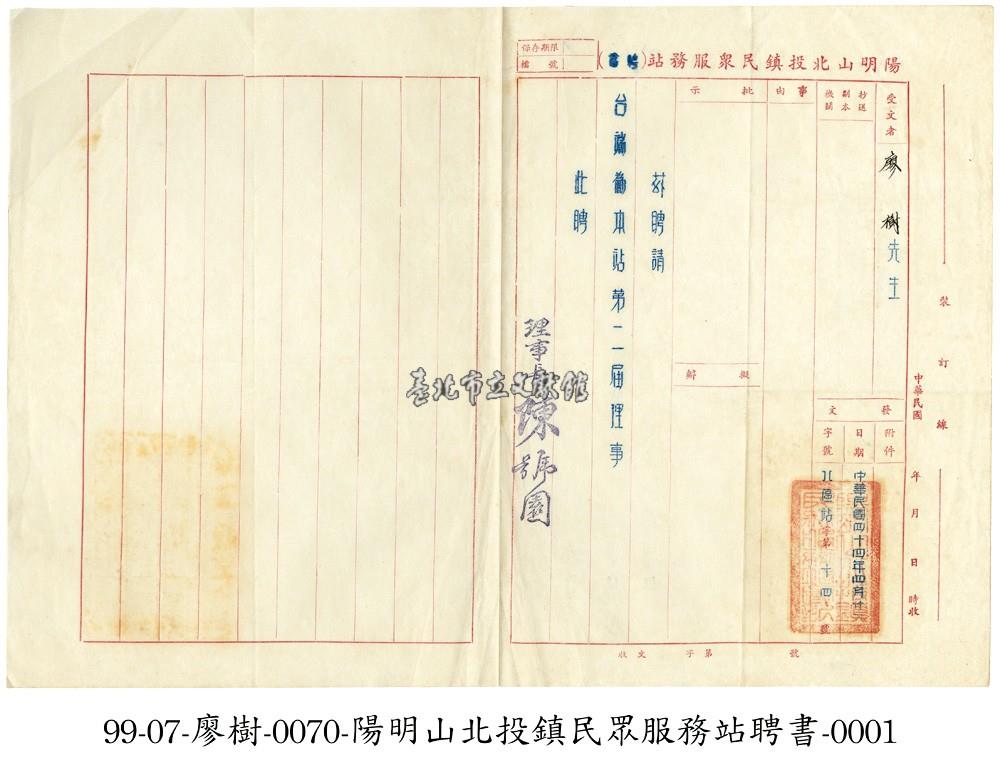 保存期限
檔號
陽明山北投鎮民眾服務站(聘書)
受文者 廖樹先生
抄送副本機關
事由
批示
擬辦
茲聘請
台端為本站第二屆理事
此聘
理事長陳號園
發文
附件
日期 中華民國四十四年四月廿
字號 北區站字第十四·六號
中華民國 年 月 日 時收
裝訂線
收文 字第 號
臺北市立文獻館
99-07-廖樹-0070-陽明山北投鎮民眾服務站聘書-0001